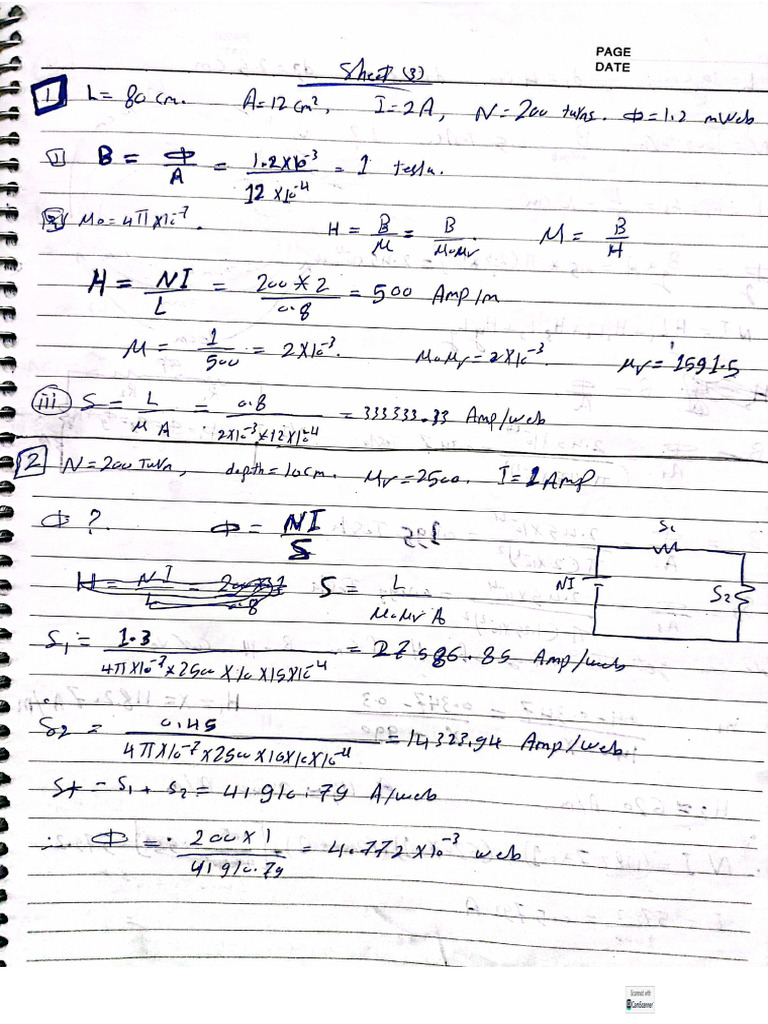 PAGE
DATE
Sheet (3)
1 L = 80 cm. A = 12 cm², I = 2A, N = 200 turns. Φ = 1.2 mWeb
i B = Φ/A = 1.2×10⁻³/12×10⁻⁴ = 1 tesla.
μ₀ = 4π×10⁻⁷. H = B/μ = B/μ₀μr. μ = B/H
H = NI/L = 200×2/0.8 = 500 Amp/m
μ = 1/500 = 2×10⁻³. μ₀μr = 2×10⁻³. μr = 1591.5
iii S = L/μA = 0.8/2×10⁻³×12×10⁻⁴ = 333333.33 Amp/web
2 N = 200 Turn, depth = 10cm. μr = 2500. I = 1 Amp
Φ ?. Φ = NI/S
S₁
NI
S₂
H = NI/L = 0.8 S = L/μ₀μr A
S₁ = 1.3/4π×10⁻⁷×2500×10×15×10⁻⁴ = 27586.85 Amp/web
S₂ = 0.45/4π×10⁻⁷×2500×10×10×10⁻⁴ = 14323.94 Amp/web.
St = S₁ + S₂ = 41910.79 A/web
∴ Φ = 200×1/41910.79 = 4.772×10⁻³ web
Scanned with
CamScanner